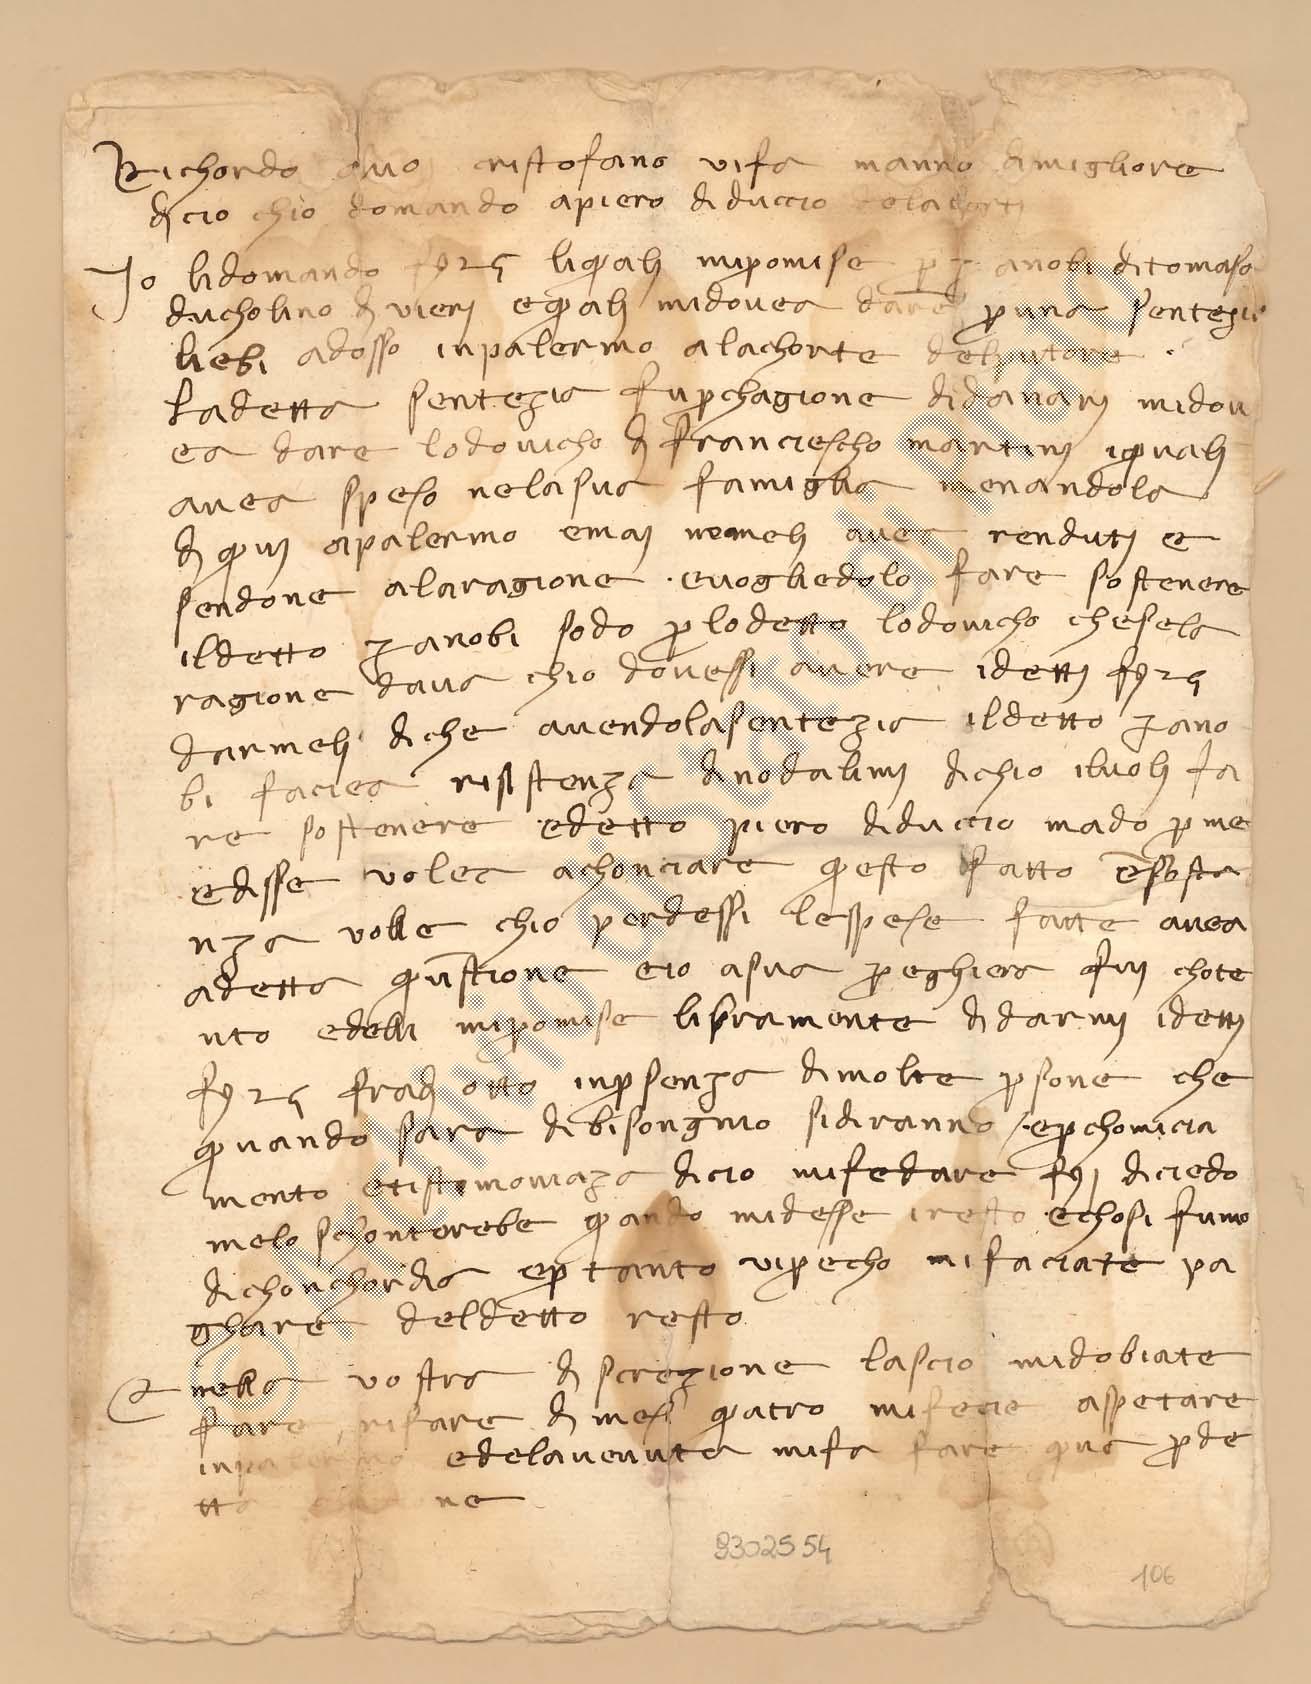 Richordo chio cristofano vi fa manno di migliore
di cio chio domando a piero di duccio
Jo li domando f 25 li quali mi promise per zanobi di tomaso
ducholino di vieri e quali mi dovea dare per una sentezia
li ebi adosso in palermo a la chorte
La detta sentezia fu per chagione di danari mi dov
ea dare lodovicho di franciescho martini i quali
avea speso ne la sua famiglia menandola
di quin a palermo e mai no me li avea renduti e
sendone a la ragione e vogliedolo fare sostenere
il detto zanobi sodo per lo detto lodovicho che se la
ragione dava chio dovessi avere i detti f 25
darmeli di che avendo la sentezia il detto zano
bi faciea risistenza di no dalimi di chio il voli fa
re sostenere e detto piero di duccio mado per me
e disse volea achonciare questo fatto e sosta
nza volle chio perdessi le spese fatte avea
a detta quistione e io a sua preghiera fui chote
nto ed elli mi promise libramente di darmi i detti
f 25 fra di otto in presenza di molte persone che
quando sara di bisongnio si diranno e per chomicia
mento e tistimoniaza di cio mi fe dare f j diciedo
me lo schonterebe quando mi desse i resto e chosi fumo
di chonchordia e per tanto vi priecho mi faciate pa
ghare del detto resto
E nella vostra discrezione lascio mi dobiate
fare rifare di mesi quatro mi fecie aspetare
in palermo e de la venuta mi fa fare qua per de
tta ne
© Archivio di Stato di Prato
9302554
106